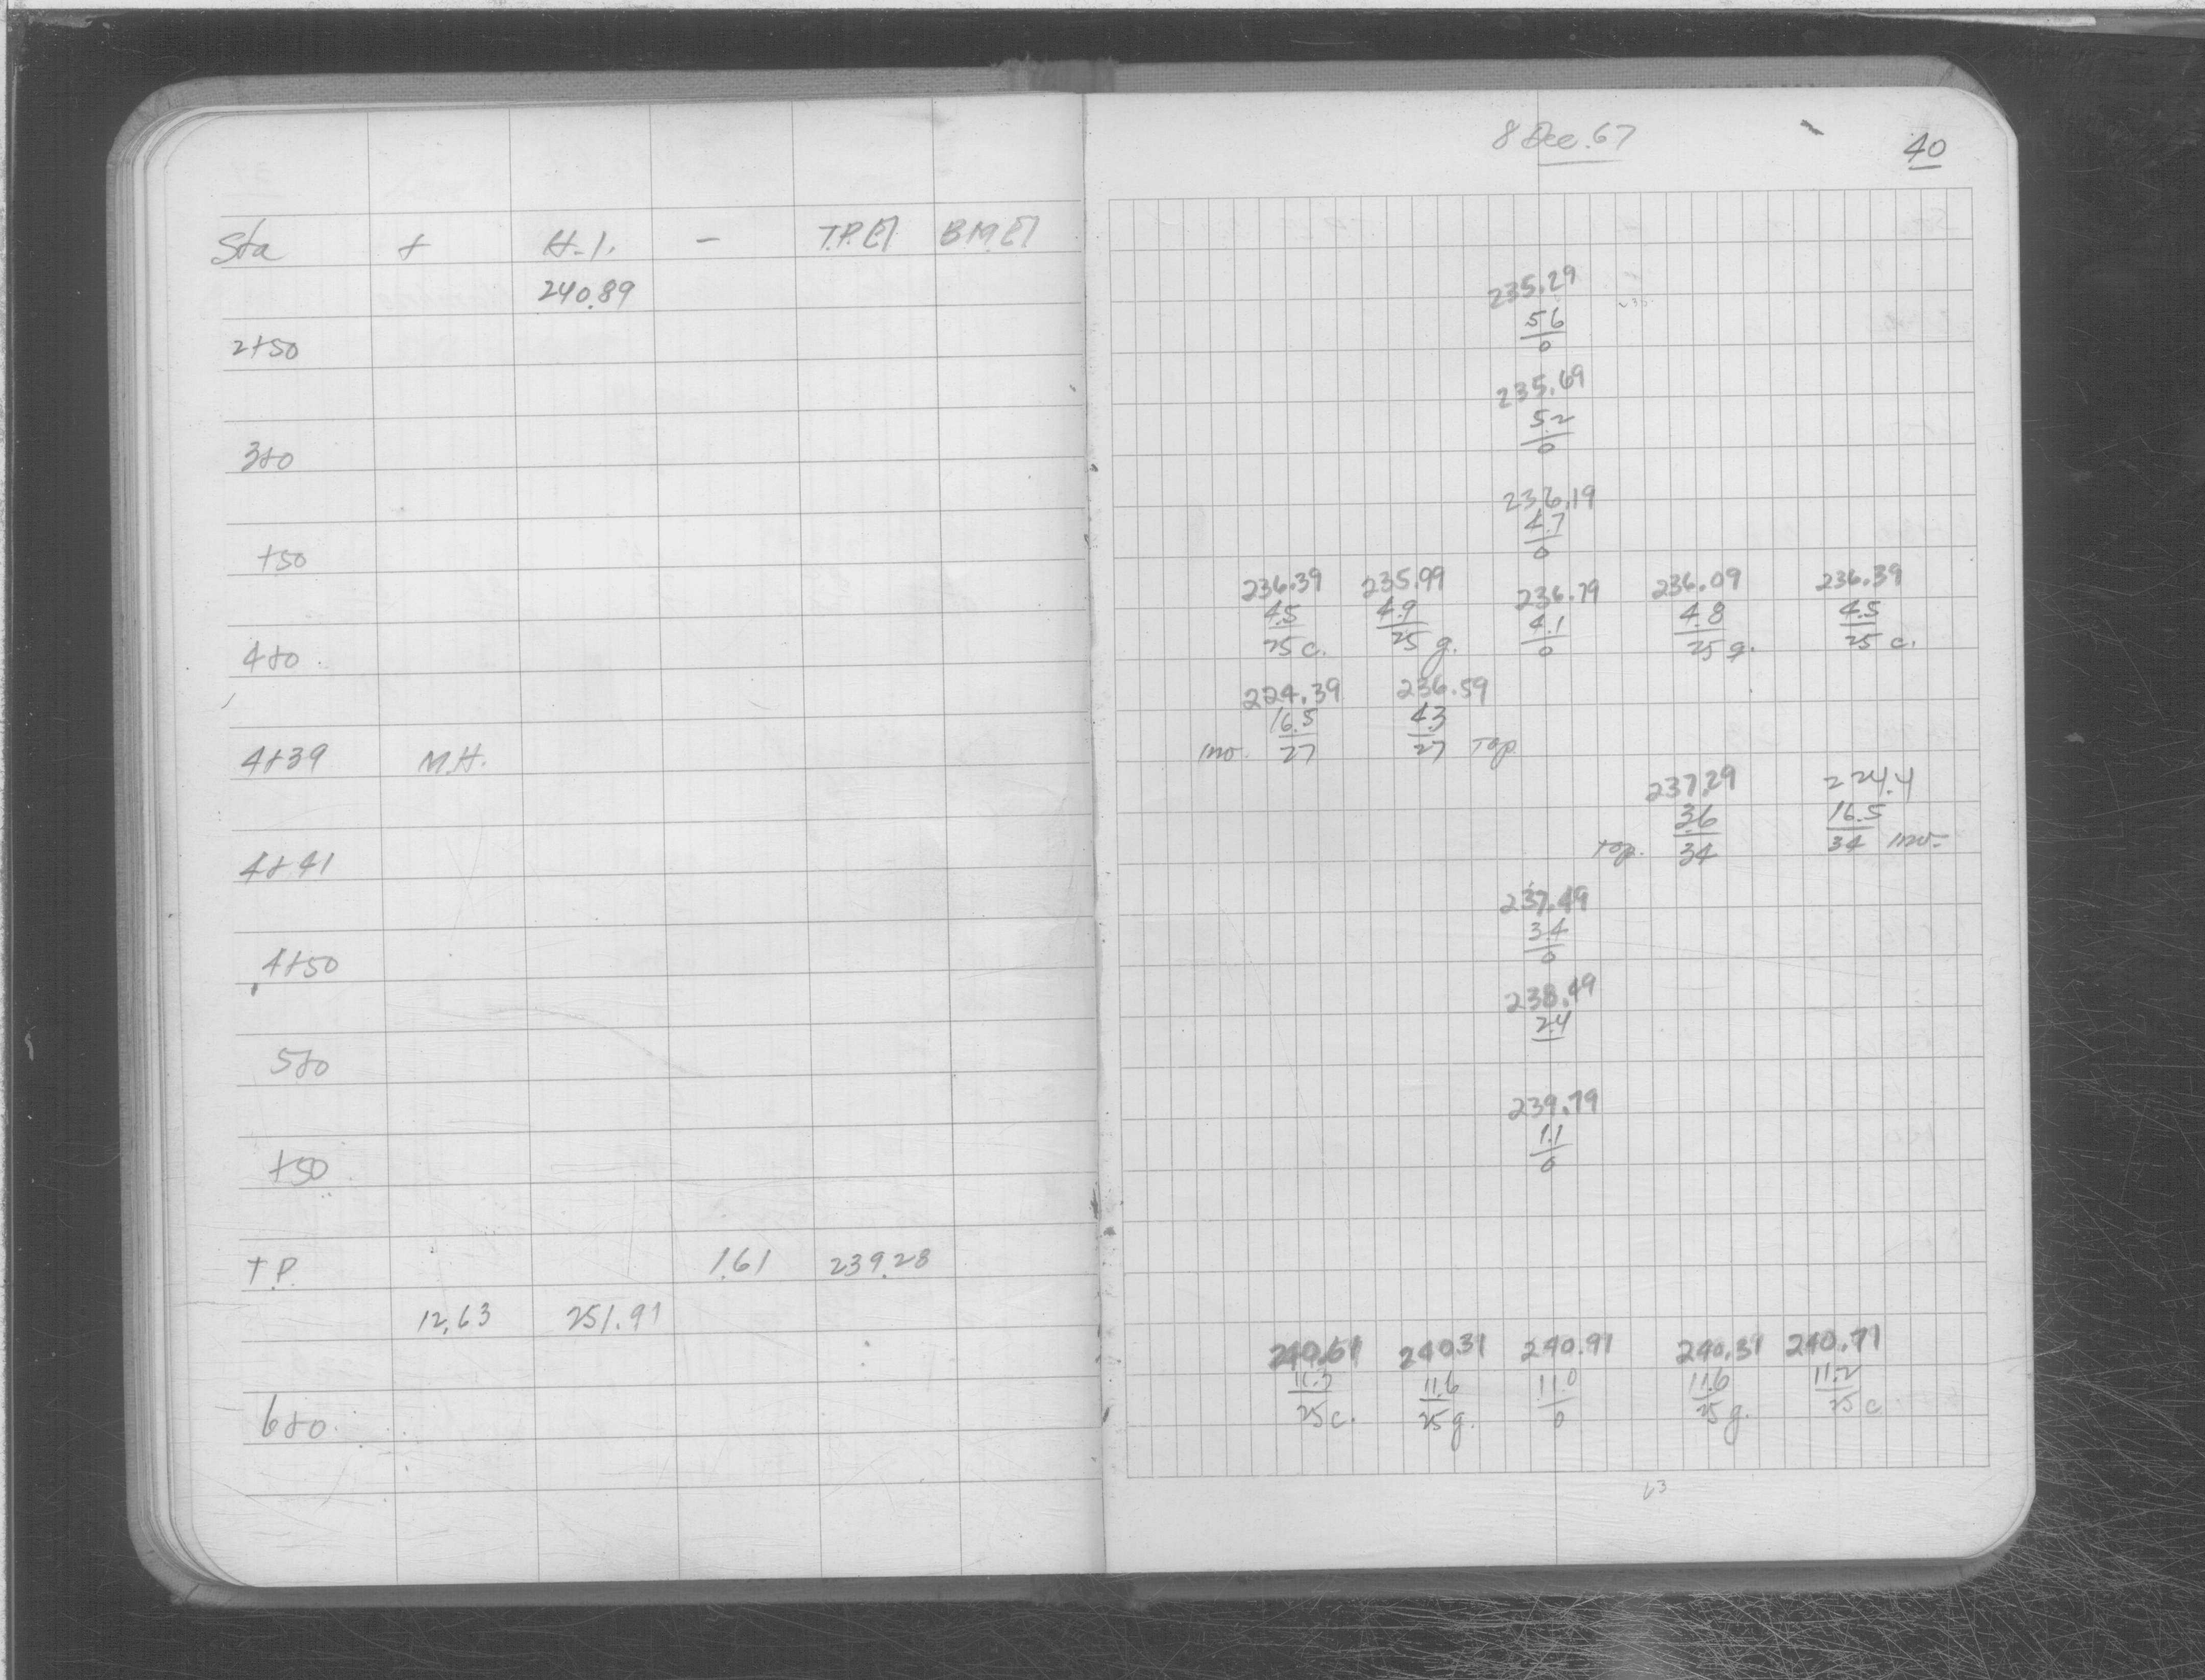 8 Dec. 67
40
Sta + H.I. - T.P.El B.M.El
240.89
2+50
3+0
+50
4+0
4+39 M.H.
4+41
4+50
5+0
+50
T.P. 1.61 239.28
12.63 251.91
6+0
235.29
5.6
0
235.69
5.2
0
236.19
4.7
0
236.39 235.99 236.79 236.09 236.39
4.5 4.9 4.1 4.8 4.5
25 c. 25 g. 0 25 g. 25 c.
224.39 236.59
16.5 4.3
Inv. 27 27 Top
237.29 224.4
3.6 16.5
Top. 34 34 Inv.
237.49
3.4
0
238.49
2.4
239.79
1.1
0
240.61 240.31 240.91 240.31 240.71
11.3 11.6 11.0 11.6 11.2
25 c. 25 g. 0 25 g. 25 c
63